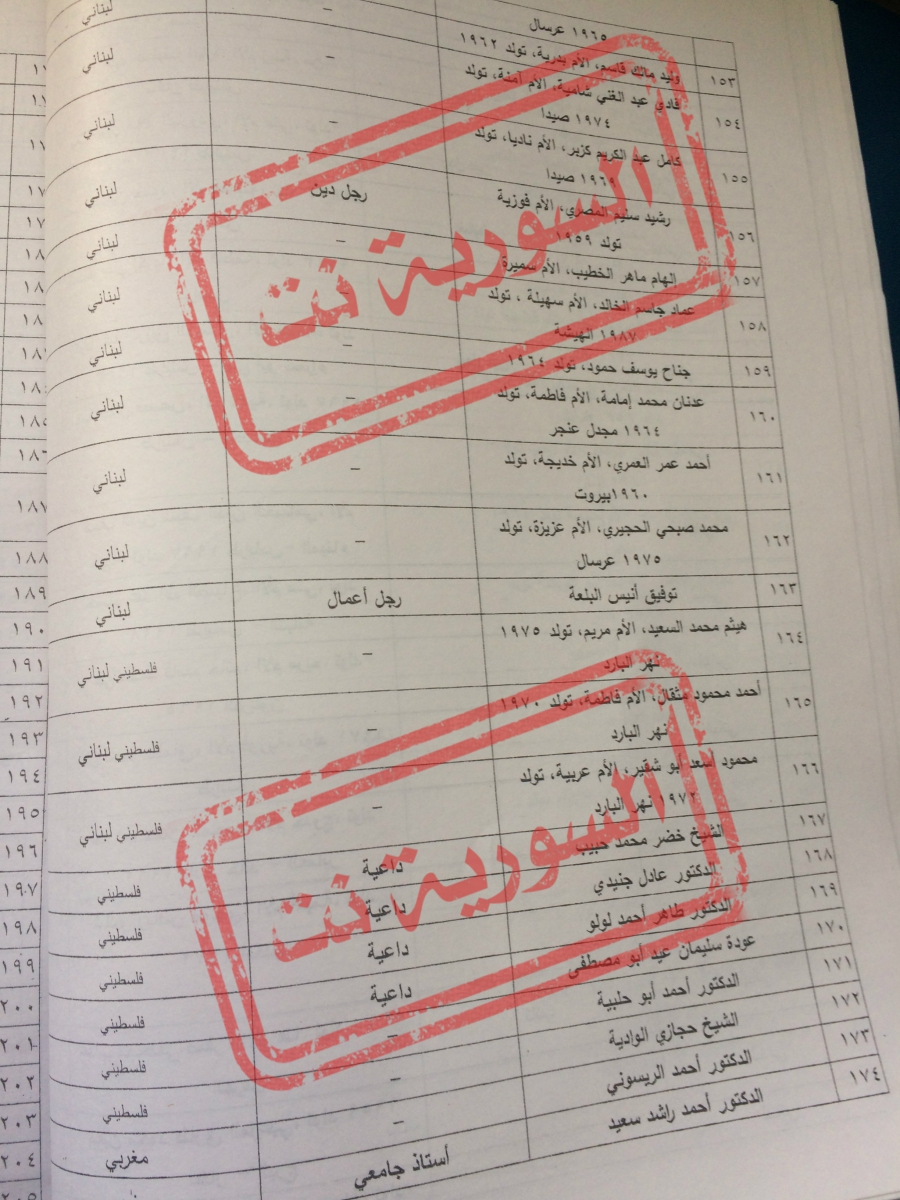 ١٩٦٥ عرسال
–
لبناني
١٥٣
وليد مالك قاسم، الأم بدرية، تولد ١٩٦٢
–
لبناني
١٥٤
فادي عبد الغني شامية، الأم آمنة، تولد
١٩٧٤ صيدا
–
لبناني
١٥٥
كامل عبد الكريم كزبر، الأم ناديا، تولد
١٩٦٩ صيدا
لبناني
١٥٦
رشيد سليم المصري، الأم فوزية
تولد ١٩٥٩
رجل دين
لبناني
١٥٧
إلهام ماهر الخطيب، الأم سميرة
–
لبناني
١٥٨
عماد جاسم الخالد، الأم سهيلة ، تولد
١٩٨٧ الهيشة
لبناني
١٥٩
جناح يوسف حمود، تولد ١٩٦٤
–
لبناني
١٦٠
عدنان محمد إمامة، الأم فاطمة، تولد
١٩٦٤ مجدل عنجر
–
لبناني
١٦١
أحمد عمر العمري، الأم خديجة، تولد
١٩٦٠بيروت
–
لبناني
١٦٢
محمد صبحي الحجيري، الأم عزيزة، تولد
١٩٧٥ عرسال
–
لبناني
١٦٣
توفيق أنيس البلعة
رجل أعمال
لبناني
١٦٤
هيثم محمد السعيد، الأم مريم، تولد ١٩٧٥
نهر البارد
–
فلسطيني لبناني
١٦٥
أحمد محمود مثقال، الأم فاطمة، تولد ١٩٧٠
نهر البارد
–
فلسطيني لبناني
١٦٦
محمود أسعد أبو شقير، الأم عربية، تولد
١٩٧٢ نهر البارد
–
فلسطيني لبناني
١٦٧
الشيخ خضر محمد حبيب
داعية
فلسطيني
١٦٨
الدكتور عادل جنيدي
داعية
فلسطيني
١٦٩
الدكتور طاهر أحمد لولو
داعية
فلسطيني
١٧٠
عودة سليمان عيد أبو مصطفى
داعية
فلسطيني
١٧١
الدكتور أحمد أبو حلبية
–
فلسطيني
١٧٢
الشيخ حجازي الوادية
–
فلسطيني
١٧٣
الدكتور أحمد الريسوني
–
مغربي
١٧٤
الدكتور أحمد راشد سعيد
أستاذ جامعي
السورية نت
السورية نت
١٨٧
١٨٨
١٨٩
١٩٠
١٩١
١٩٢
١٩٣
١٩٤
١٩٥
١٩٦
١٩٧
١٩٨
١٩٩
٢٠٠
٢٠١
٢٠٢
٢٠٣
٢٠٤